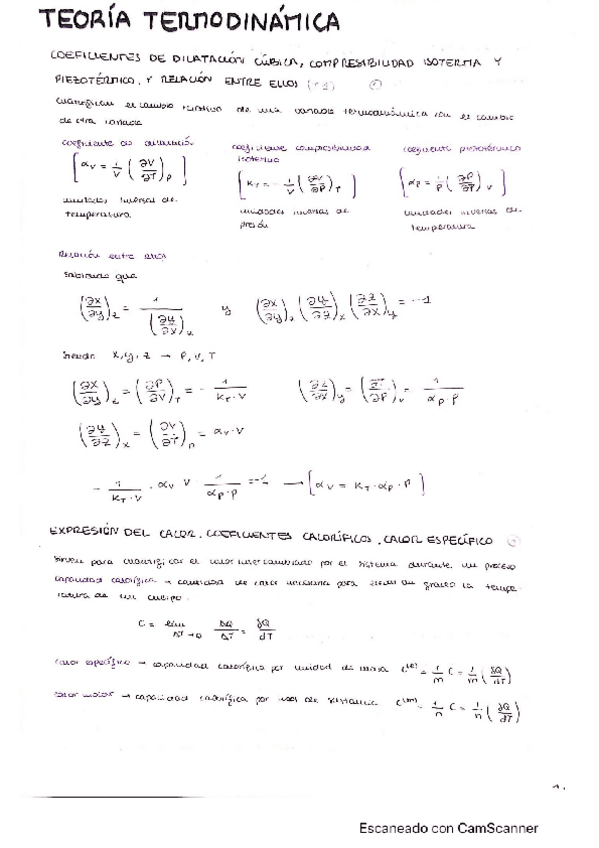 TEORÍA TERMODINÁMICA
COEFICIENTES DE DILATACIÓN CÚBICA, COMPRESIBILIDAD ISOTERMA Y
PIEZOTÉRMICO, Y RELACIÓN ENTRE ELLOS
Cuantifican el cambio relativo de una variable termodinámica con el cambio
de otra variable
coeficiente de dilatación
[αV = 1/V (∂V/∂T)P]
unidades inversas de
temperatura
coeficiente compresibilidad
isotermo
[KT = - 1/V (∂V/∂P)T]
unidades inversas de
presión
coeficiente piezotérmico
[αP = 1/P (∂P/∂T)V]
unidades inversas de
temperatura
Relación entre ellos
Sabiendo que
(∂x/∂y)z = 1/(∂y/∂x)z y (∂x/∂y)z (∂y/∂z)x (∂z/∂x)y = -1
Siendo x, y, z → P, V, T
(∂x/∂y)z = (∂P/∂V)T = - 1/(KT·V) (∂z/∂x)y = (∂T/∂P)V = 1/(αP·P)
(∂y/∂z)x = (∂V/∂T)P = αV·V
- 1/(KT·V) · αV V · 1/(αP·P) = -1 → [αV = KT·αP·P]
EXPRESIÓN DEL CALOR. COEFICIENTES CALORÍFICOS. CALOR ESPECÍFICO
Sirven para cuantificar el calor intercambiado por el sistema durante un proceso
capacidad calorífica → cantidad de calor necesaria para elevar un grado la tempe-
ratura de un cuerpo.
C = lim ΔT→0 ΔQ/ΔT = δQ/dT
calor específico → capacidad calorífica por unidad de masa c(e) = 1/m C = 1/m (δQ/dT)
calor molar → capacidad calorífica por mol de sustancia c(m) = 1/n C = 1/n (δQ/dT)
1.
Escaneado con CamScanner